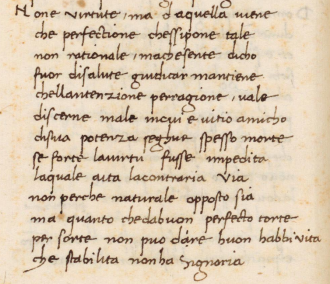 Non e virtute, ma d aquella viene
che perfectione chessipone tale
non rationale, mache sente dicho
fuor disalute giudicar mantiene
chellantenzione perragione, vale
discerne male incui e vitio amicho
disua potenza seghue spesso morte
se forte lavirtu fusse impedita
laquale aita lacontraria via
non perche naturale opposto sia
ma quanto chedabuon perfecto torte
per sorte non puo dare huon habbi vita
che stabilita nonha signoria